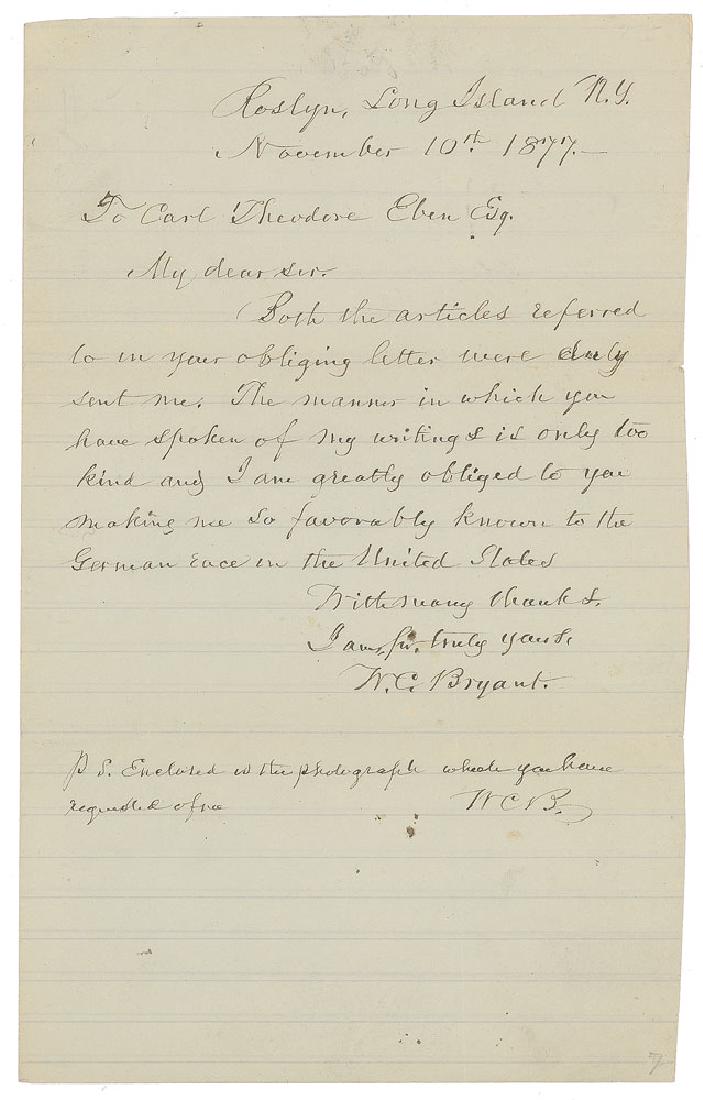 Roslyn, Long Island N.Y.
November 10th. 1877.—
To Carl Theodore Eben Esq.
My dear sir.
Both the articles referred
to in your obliging letter were duly
sent me. The manner in which you
have spoken of my writings is only too
kind and I am greatly obliged to you
making me so favorably known to the
German race in the United States
With many thanks.
I am, sir, truly yours,
W. C. Bryant.
P. S. Enclosed is the photograph which you have
requested of me
W C B.
7